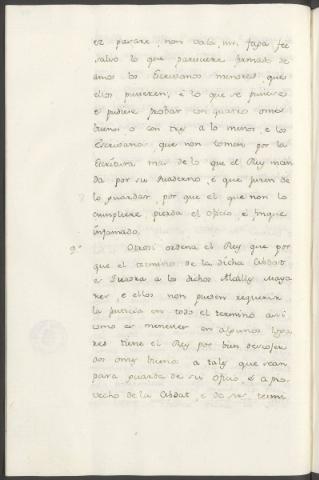 ez pasare, non vala, nin faga fee
salvo lo que pareciere firmado de
amos los Escribanos menores, que
ellos pusieren, e lo que se pusiere
e pudiere probar con quatro omes
buenos o con tres a lo menos, e los
Escribanos que non tomen por la
Escritura mas de lo que el Rey man
da por su quaderno, e que juren de
lo guardar, por que el que non lo
cumpliere, pierda el oficio, e finque
infamado.
9.º Otrosi ordena el Rey que por
que el termino de la dicha Cibdat
es grande a los dichos Alcalles Mayo
res e ellos non pueden requerir
la justicia en todo el termino assi
como es menester en algunos loga
res tiene el Rey por bien descojer
dos omes buenos a tales que sean
para guarda de su oficio, e a pro-
vecho de la Cibdat, e de su termi